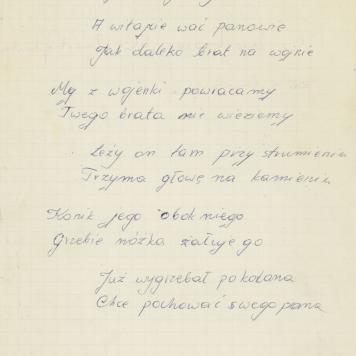 A witajcie wać panowie
Jak daleko brat na wojnie
My z wojenki powracamy
Twego brata nie wieziemy
Leży on tam przy strumieniu
Trzyma głowę na kamieniu
Konik jego obok niego
Grzebie nóżka żałuje go
Już wygrzebał po kolana
Chce pochować swego pana